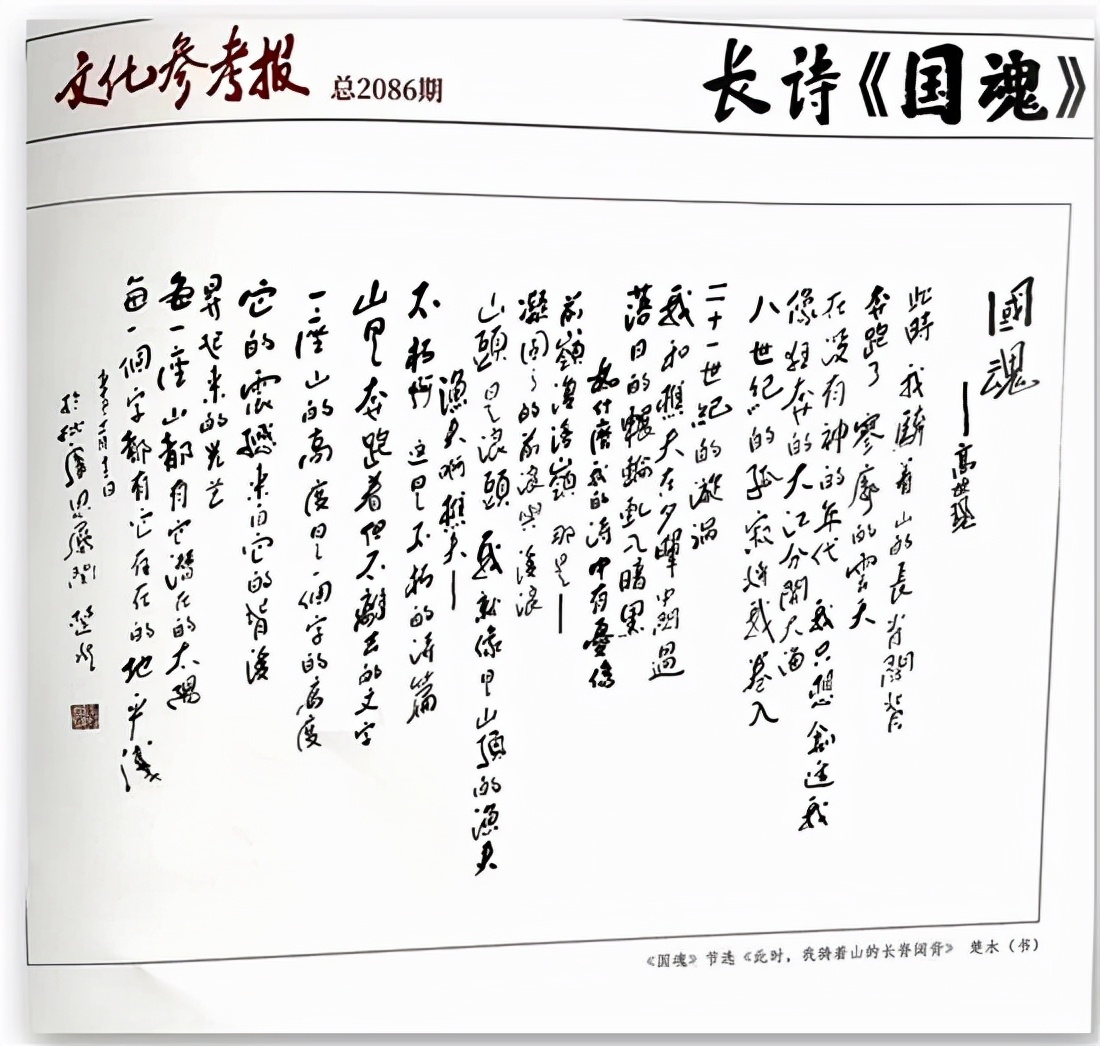 文化参考报 总2086期
长诗《国魂》
國魂
——高世現
此時 我騎着山的長脊闊背
奔跑了 寥廓的雲天
在没有神的年代 我只想創造我
像狂奔的大江分開大海
八世紀的孤寂將我卷入
二十一世紀的漩渦
我和樵夫在夕暉中閃過
落日的輾輪亂入暗黑
為什麽我的詩中有憂傷
前嶺漫後嶺 那是——
凝固了的前浪與後浪
山頭是浪頭 我就像甲山頂的漁夫
漁夫啊樵夫——
不朽啊 这是不朽的诗篇
山里奔跑着但不離去的文字
一座山的高度是一個字的高度
它的震撼来自它的背後
昇起来的光芒
每一座山都有它潜在的太陽
每一個字都有它存在的地平线
楚水
《国魂》节选《此时，我骑着山的长脊阔背》 楚水（书）